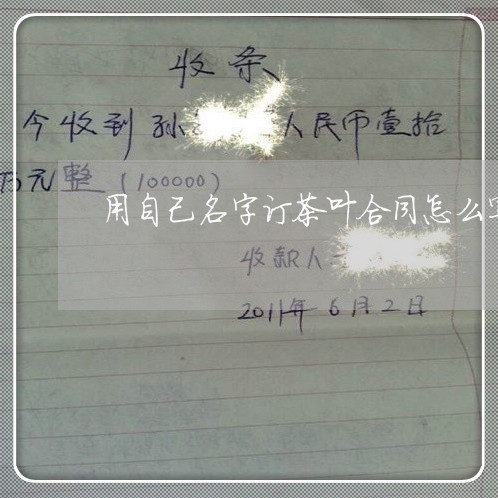 收条
今收到孙 人民币壹拾
万元整（100000）
用自己名字订茶叶合同怎么
收款人
2011年6月2日